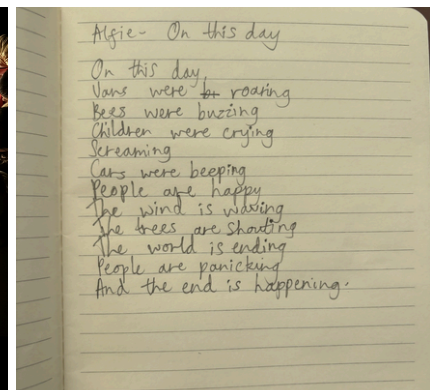 Alfie - On this day
On this day,
Vans were roaring
Bees were buzzing
Children were crying
Screaming
Cars were beeping
People are happy
The wind is waving
The trees are shouting
The world is ending
People are panicking
And the end is happening.